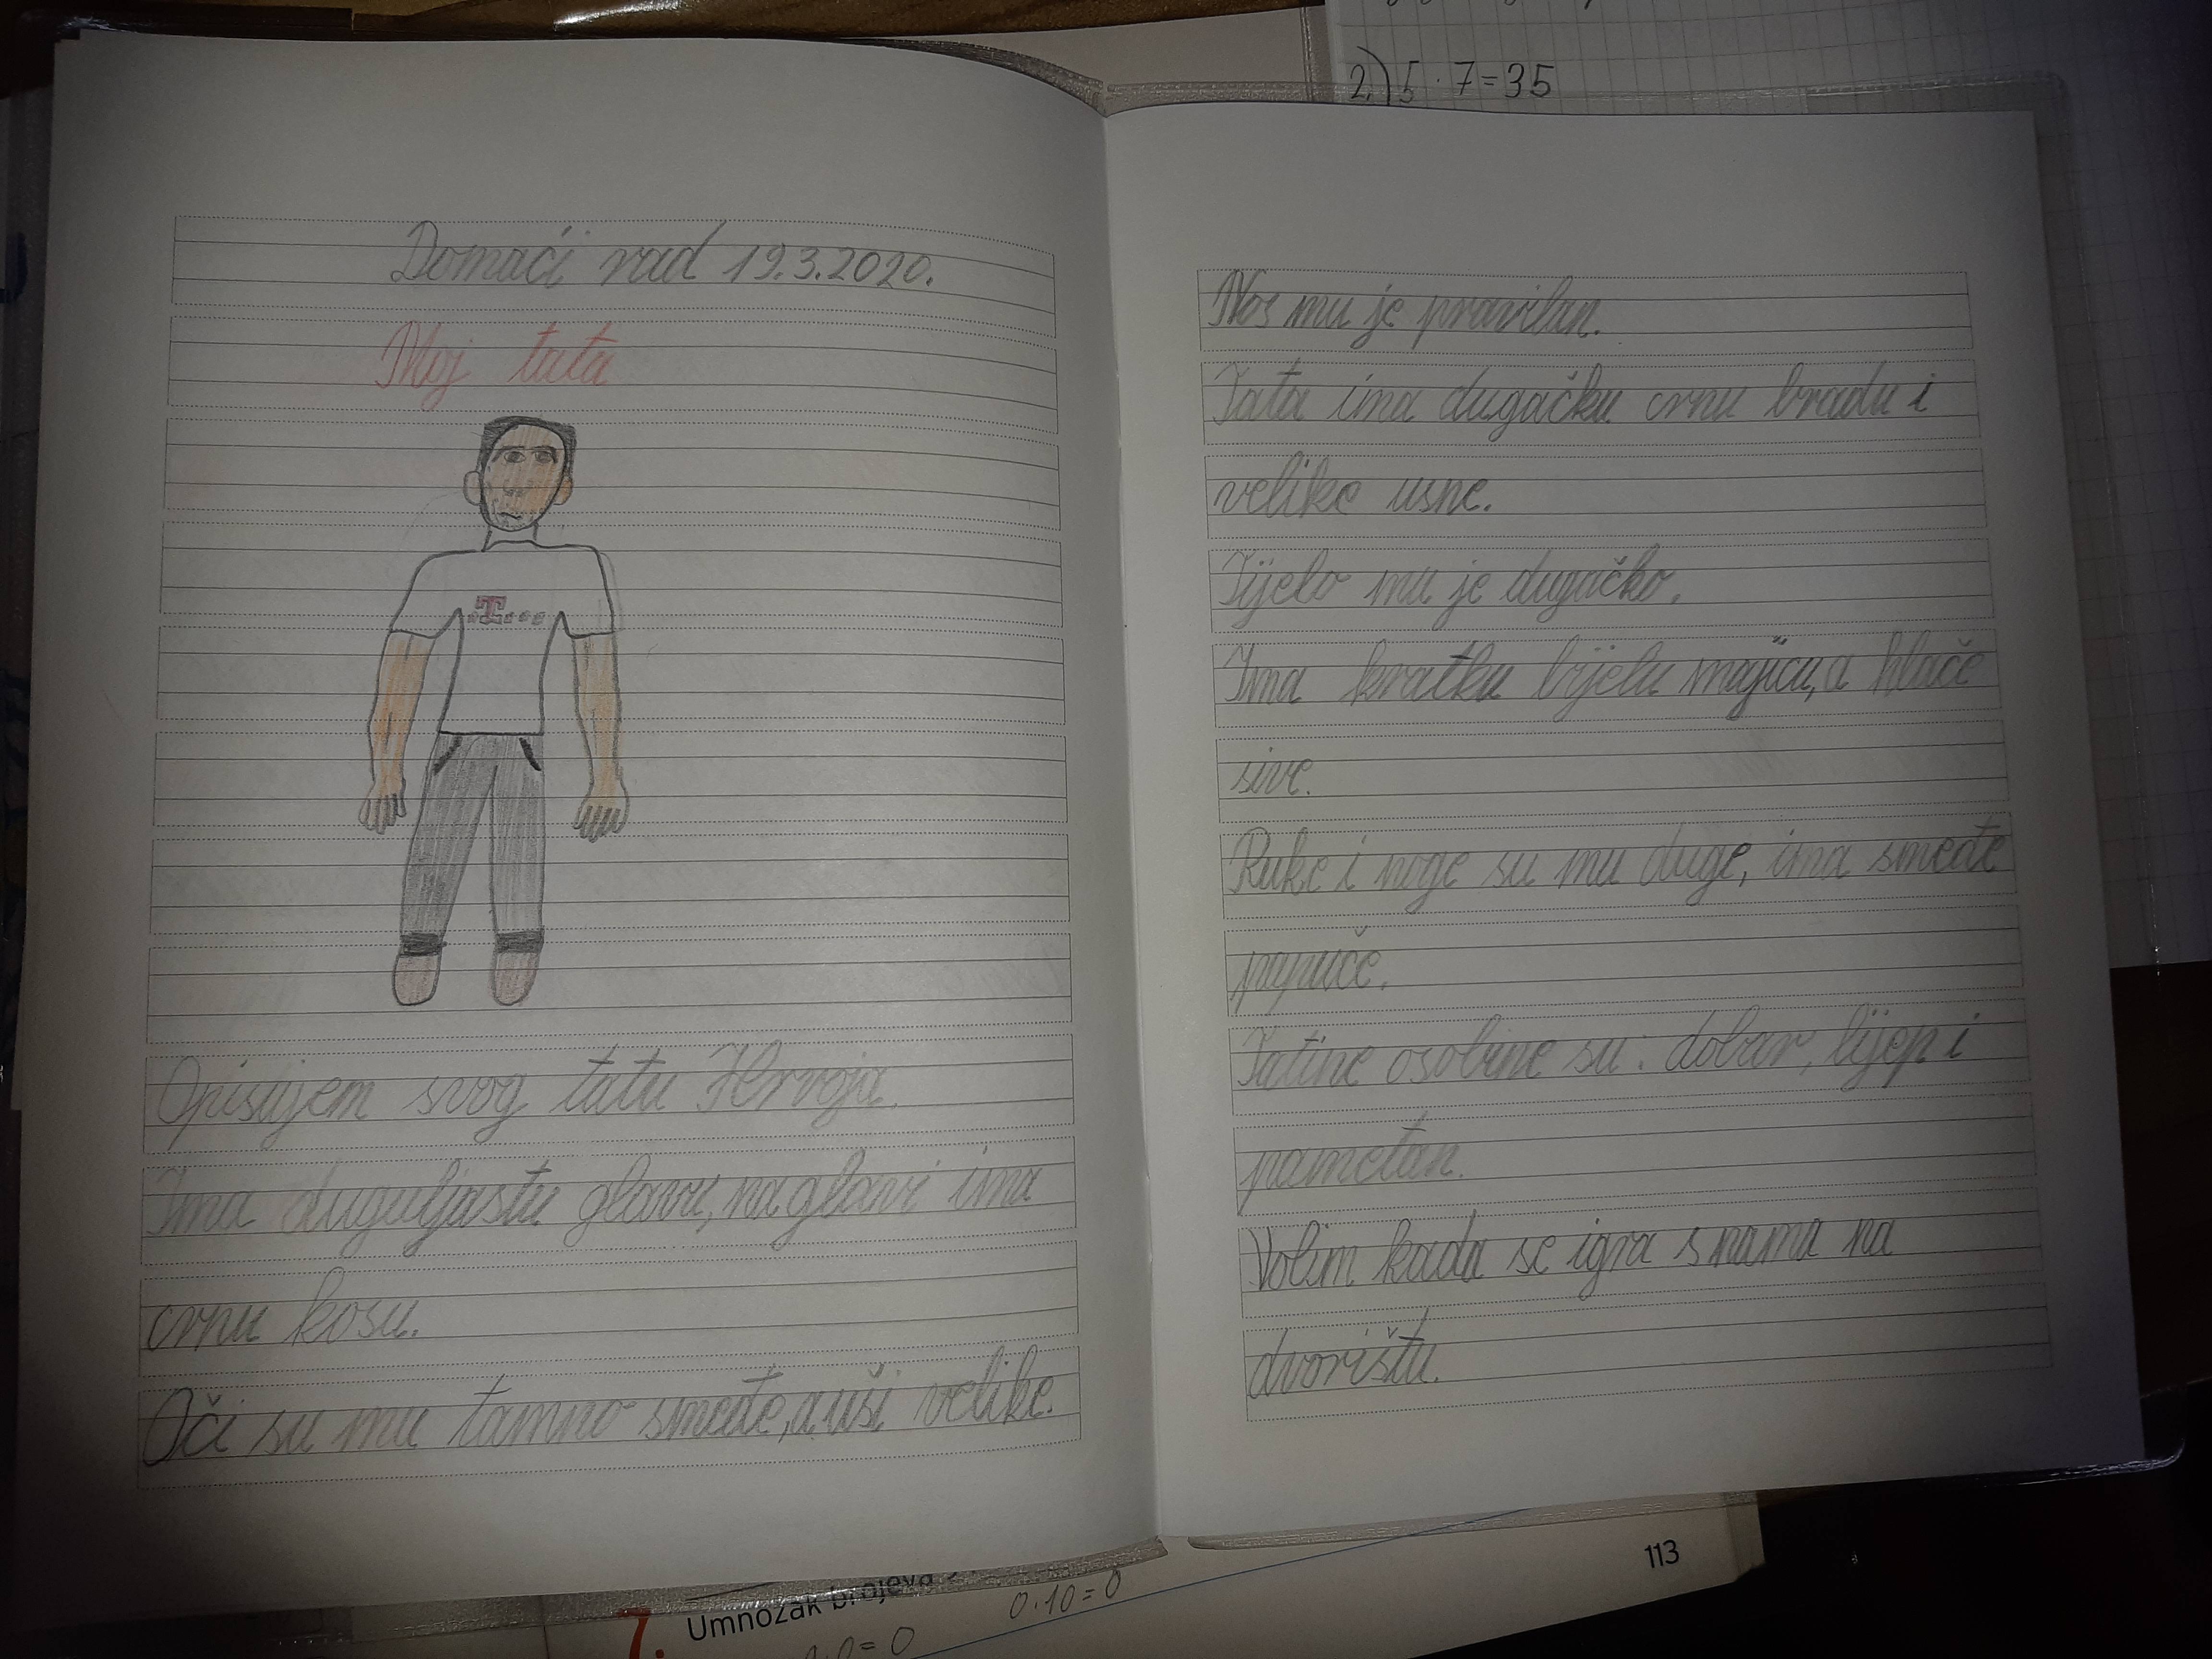 2.) 5 · 7 = 35
Domaći rad 19.3.2020.
Moj tata
T
Opisujem svog tatu Hrvoja.
Ima duguljastu glavu, na glavi ima
crnu kosu.
Oči su mu tamno smeđe, a uši velike.
Nos mu je pravilan.
Tata ima dugačku crnu bradu i
velike usne.
Tijelo mu je dugačko.
Ima kratku bijelu majicu, a hlače
sive.
Ruke i noge su mu duge, ima smeđe
papuče.
Tatine osobine su: dobar, lijep i
pametan.
Volim kada se igra s nama na
dvorištu.
113
7. Umnožak brojeva
0·10=0
0=0